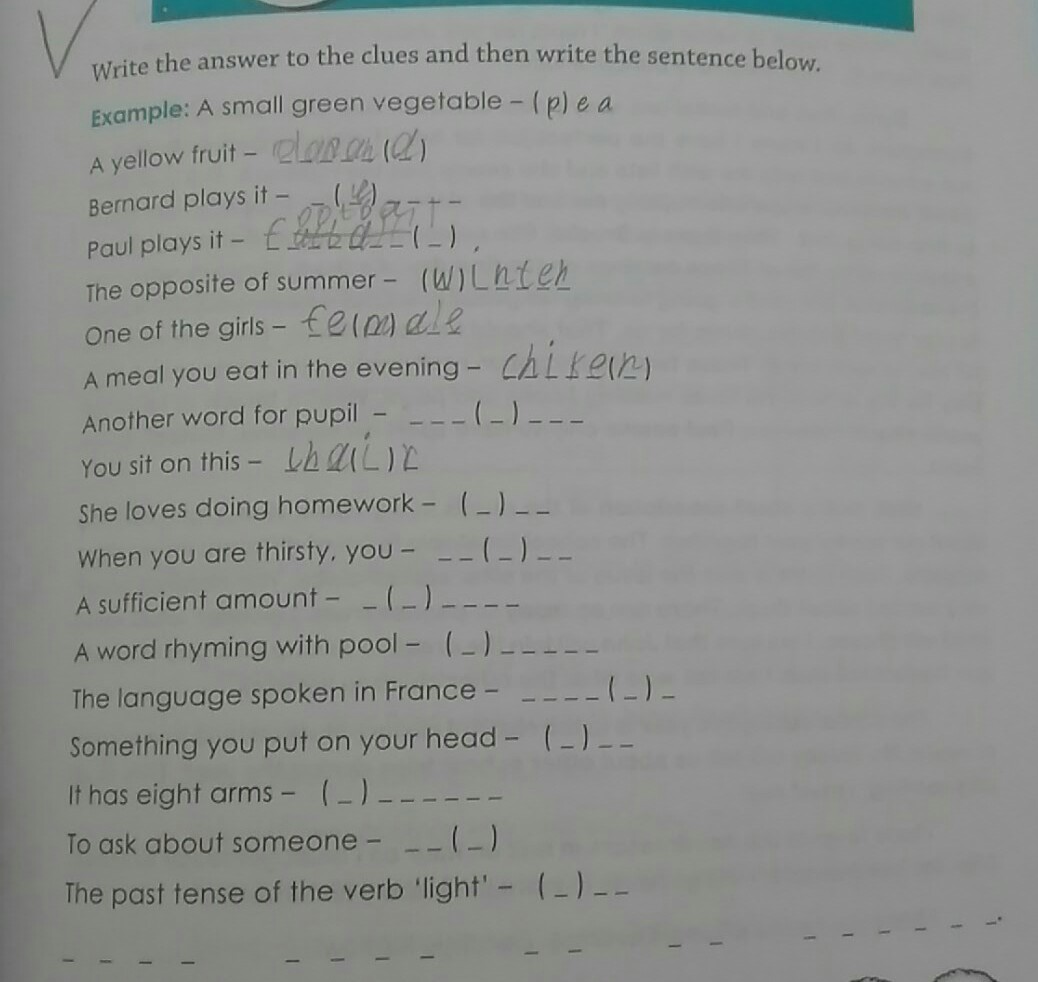 Write the answer to the clues and then write the sentence below.
Example: A small green vegetable – (p) e a
A yellow fruit – (a)
Bernard plays it – _ (e) _ _ _ _
Paul plays it – (_).
The opposite of summer – (W)inter
One of the girls – fe(m)ale
A meal you eat in the evening – chike(n)
Another word for pupil – _ _ _ (_) _ _ _
You sit on this – cha(i)r
She loves doing homework – (_) _ _
When you are thirsty, you – _ _ (_) _ _
A sufficient amount – _ (_) _ _ _ _
A word rhyming with pool – (_) _ _ _ _ _
The language spoken in France – _ _ _ _ _ (_) _
Something you put on your head – (_) _ _
It has eight arms – (_) _ _ _ _ _ _
To ask about someone – _ _ (_)
The past tense of the verb 'light' – (_) _ _
_ _ _ _ _ _ _ _ _ _ _ _ _ _ _ _ _ _.